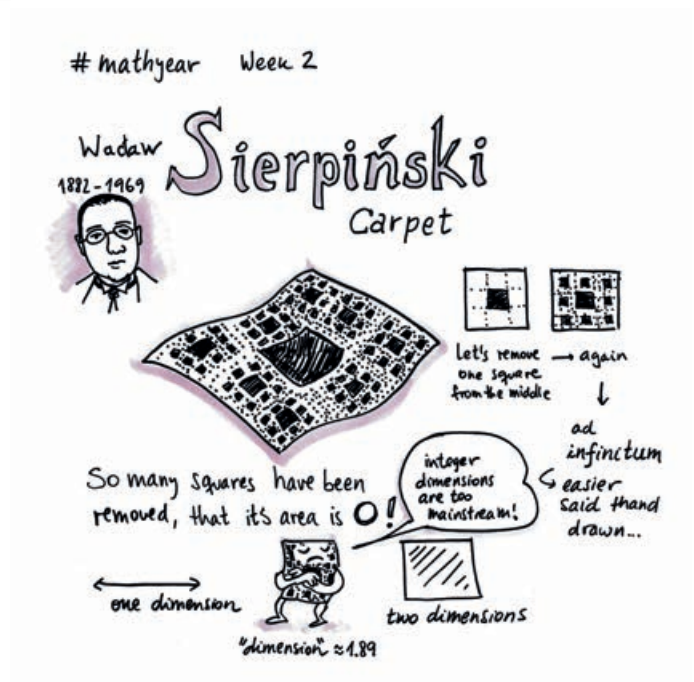 # mathyear Week 2
Wacław
Sierpiński
1882-1969
Carpet
Let's remove
one square
from the middle
→ again
ad
infinitum
easier
said thand
drawn...
So many squares have been
removed, that it's area is 0!
integer
dimensions
are too
mainstream!
one dimension
"dimension" ≈ 1.89
two dimensions